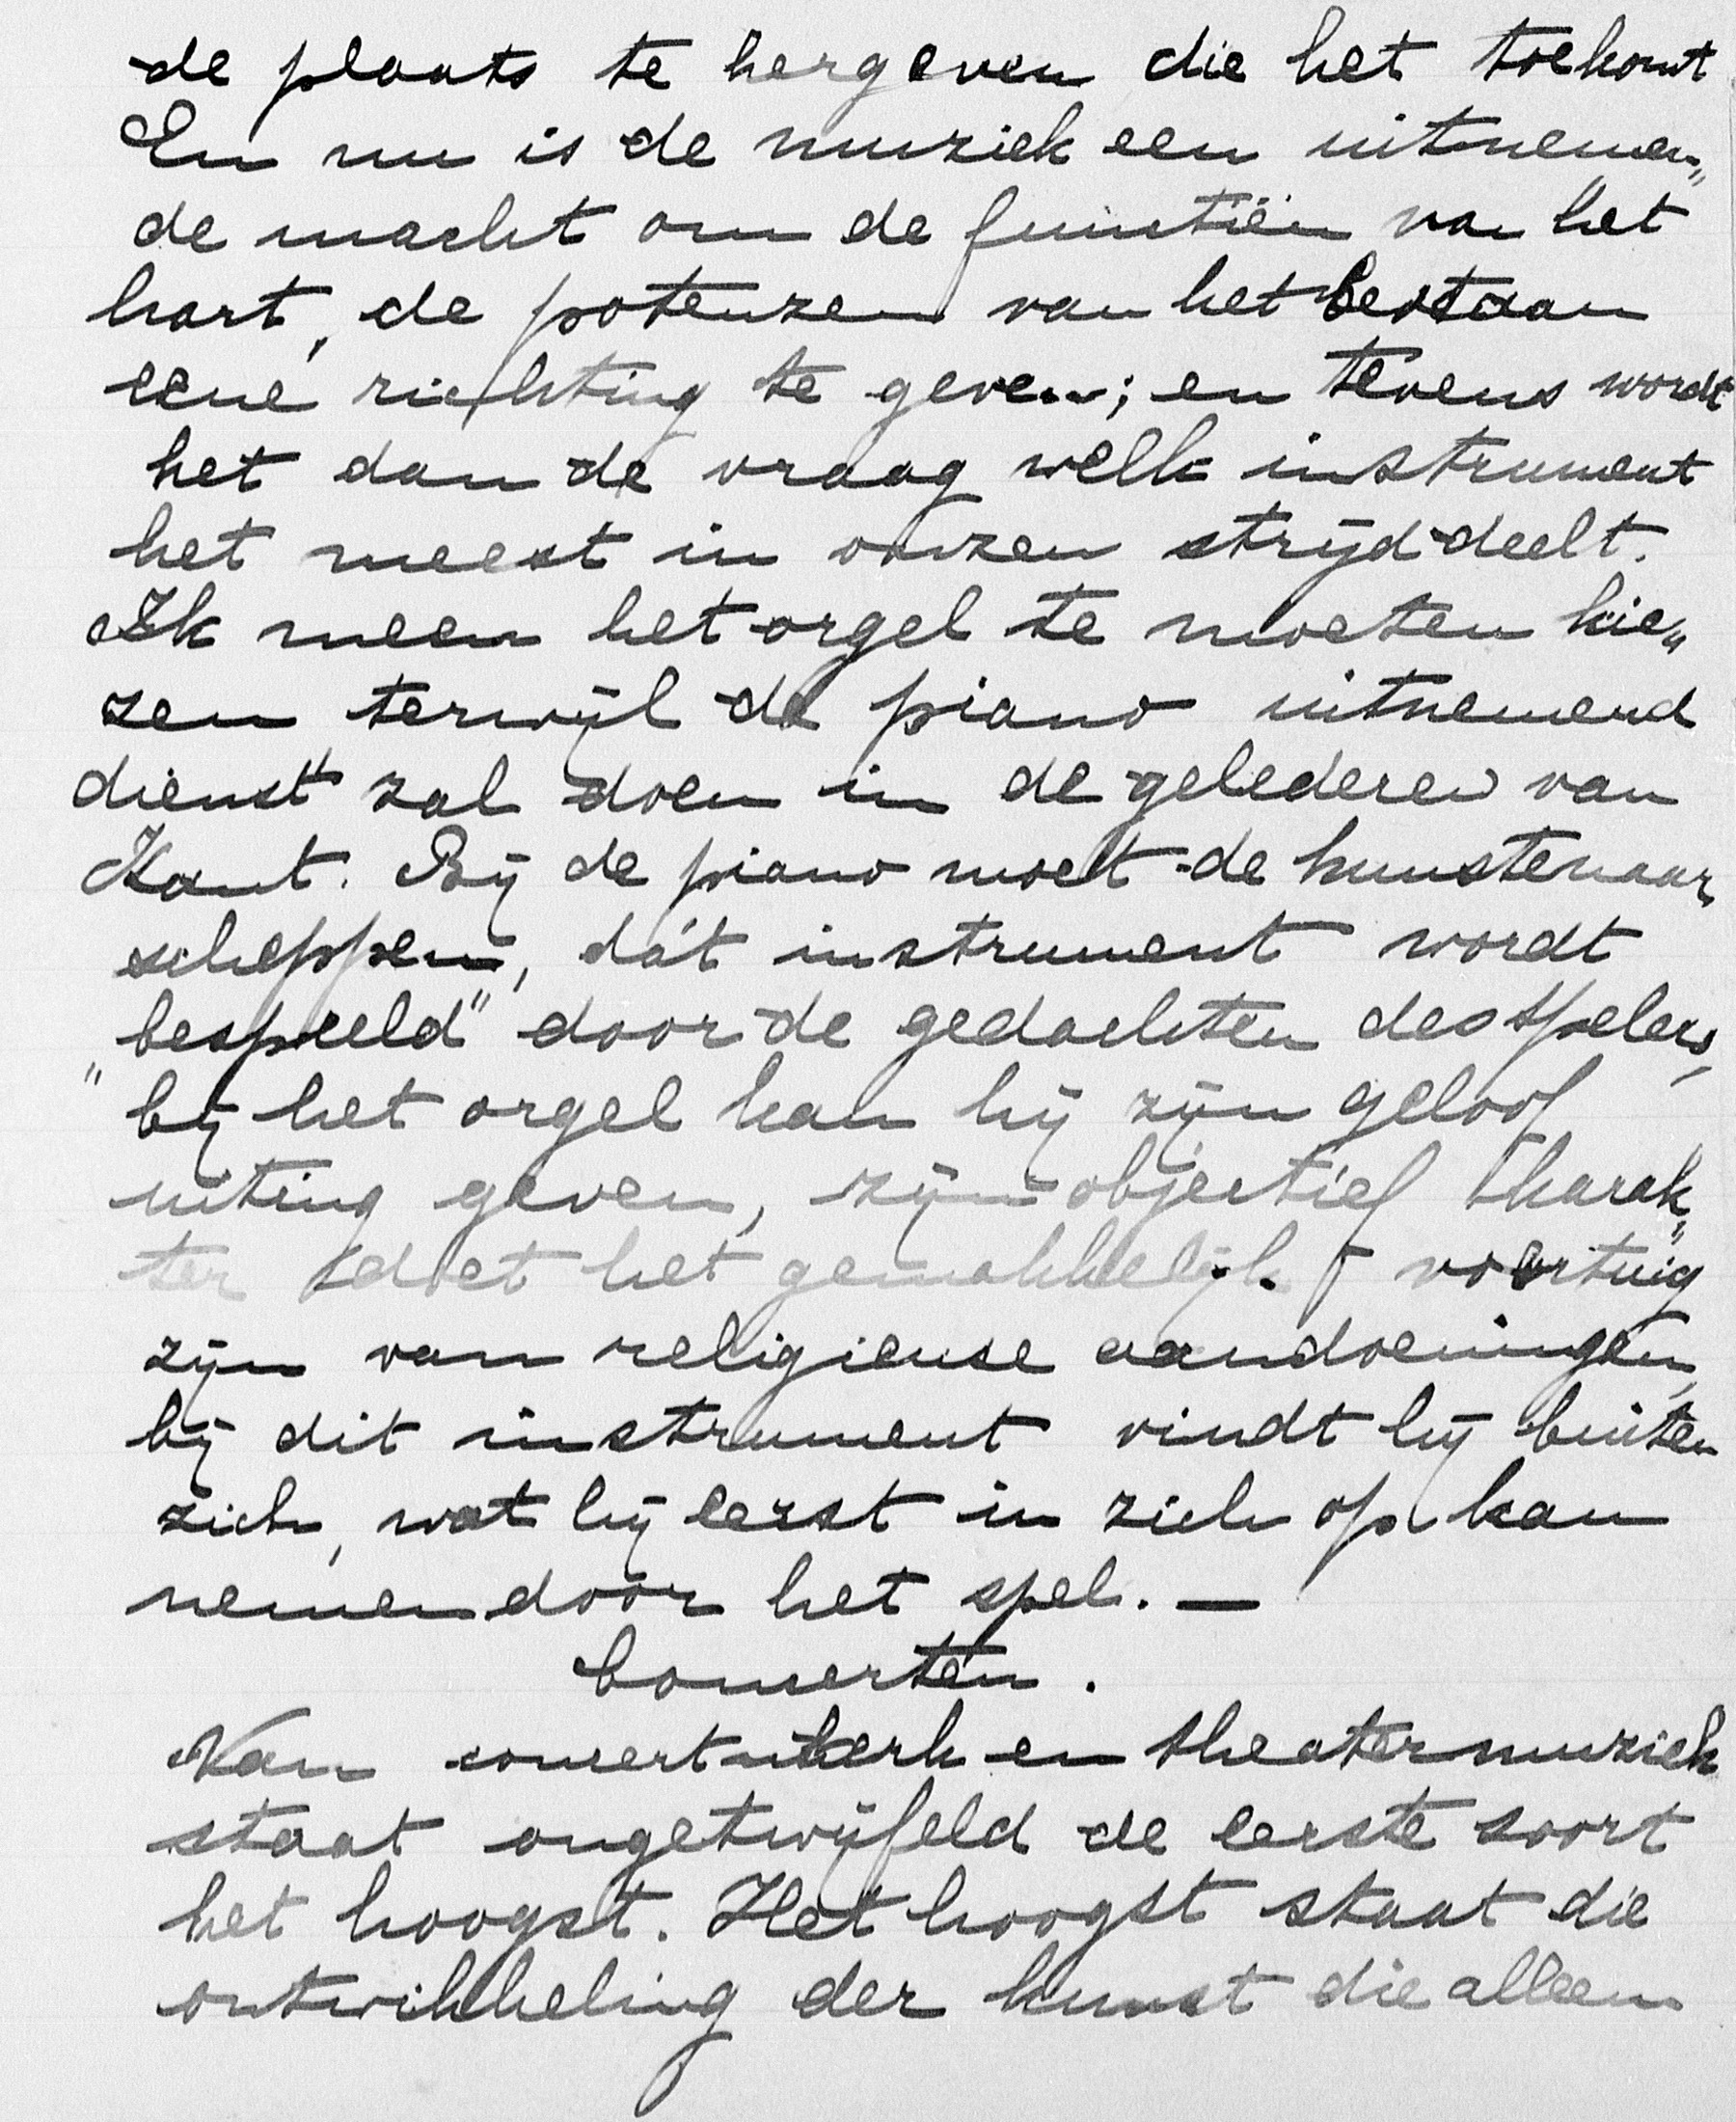 de plaats te hergeven die het toekomt
En nu is de muziek een uitnemen„
de macht om de functiën van het
hart, de potenzen van het bestaan
eene richting te geven; en tevens wordt
het dan de vraag welk instrument
het meest in onzen strijd deelt.
Ik meen het orgel te moeten kie„
zen terwijl de piano uitnemend
dienst zal doen in de gelederen van
Kant. Bij de piano moet de kunstenaar
scheppen, dát instrument wordt
„bespeeld" door de gedachten des spelers,
bij het orgel kan hij zijn geloof
uiting geven, zijn objectief karak„
ter doet het gemakkelijk voertuig
zijn van religieuse aandoeningen,
bij dit instrument vindt hij buiten
zich, wat hij eerst in zich op kan
nemen door het spel. —
Concerten.
Van concert- kerk en theatermuziek
staat ongetwijfeld de eerste soort
het hoogst. Het hoogst staat die
ontwikkeling der kunst die alleen